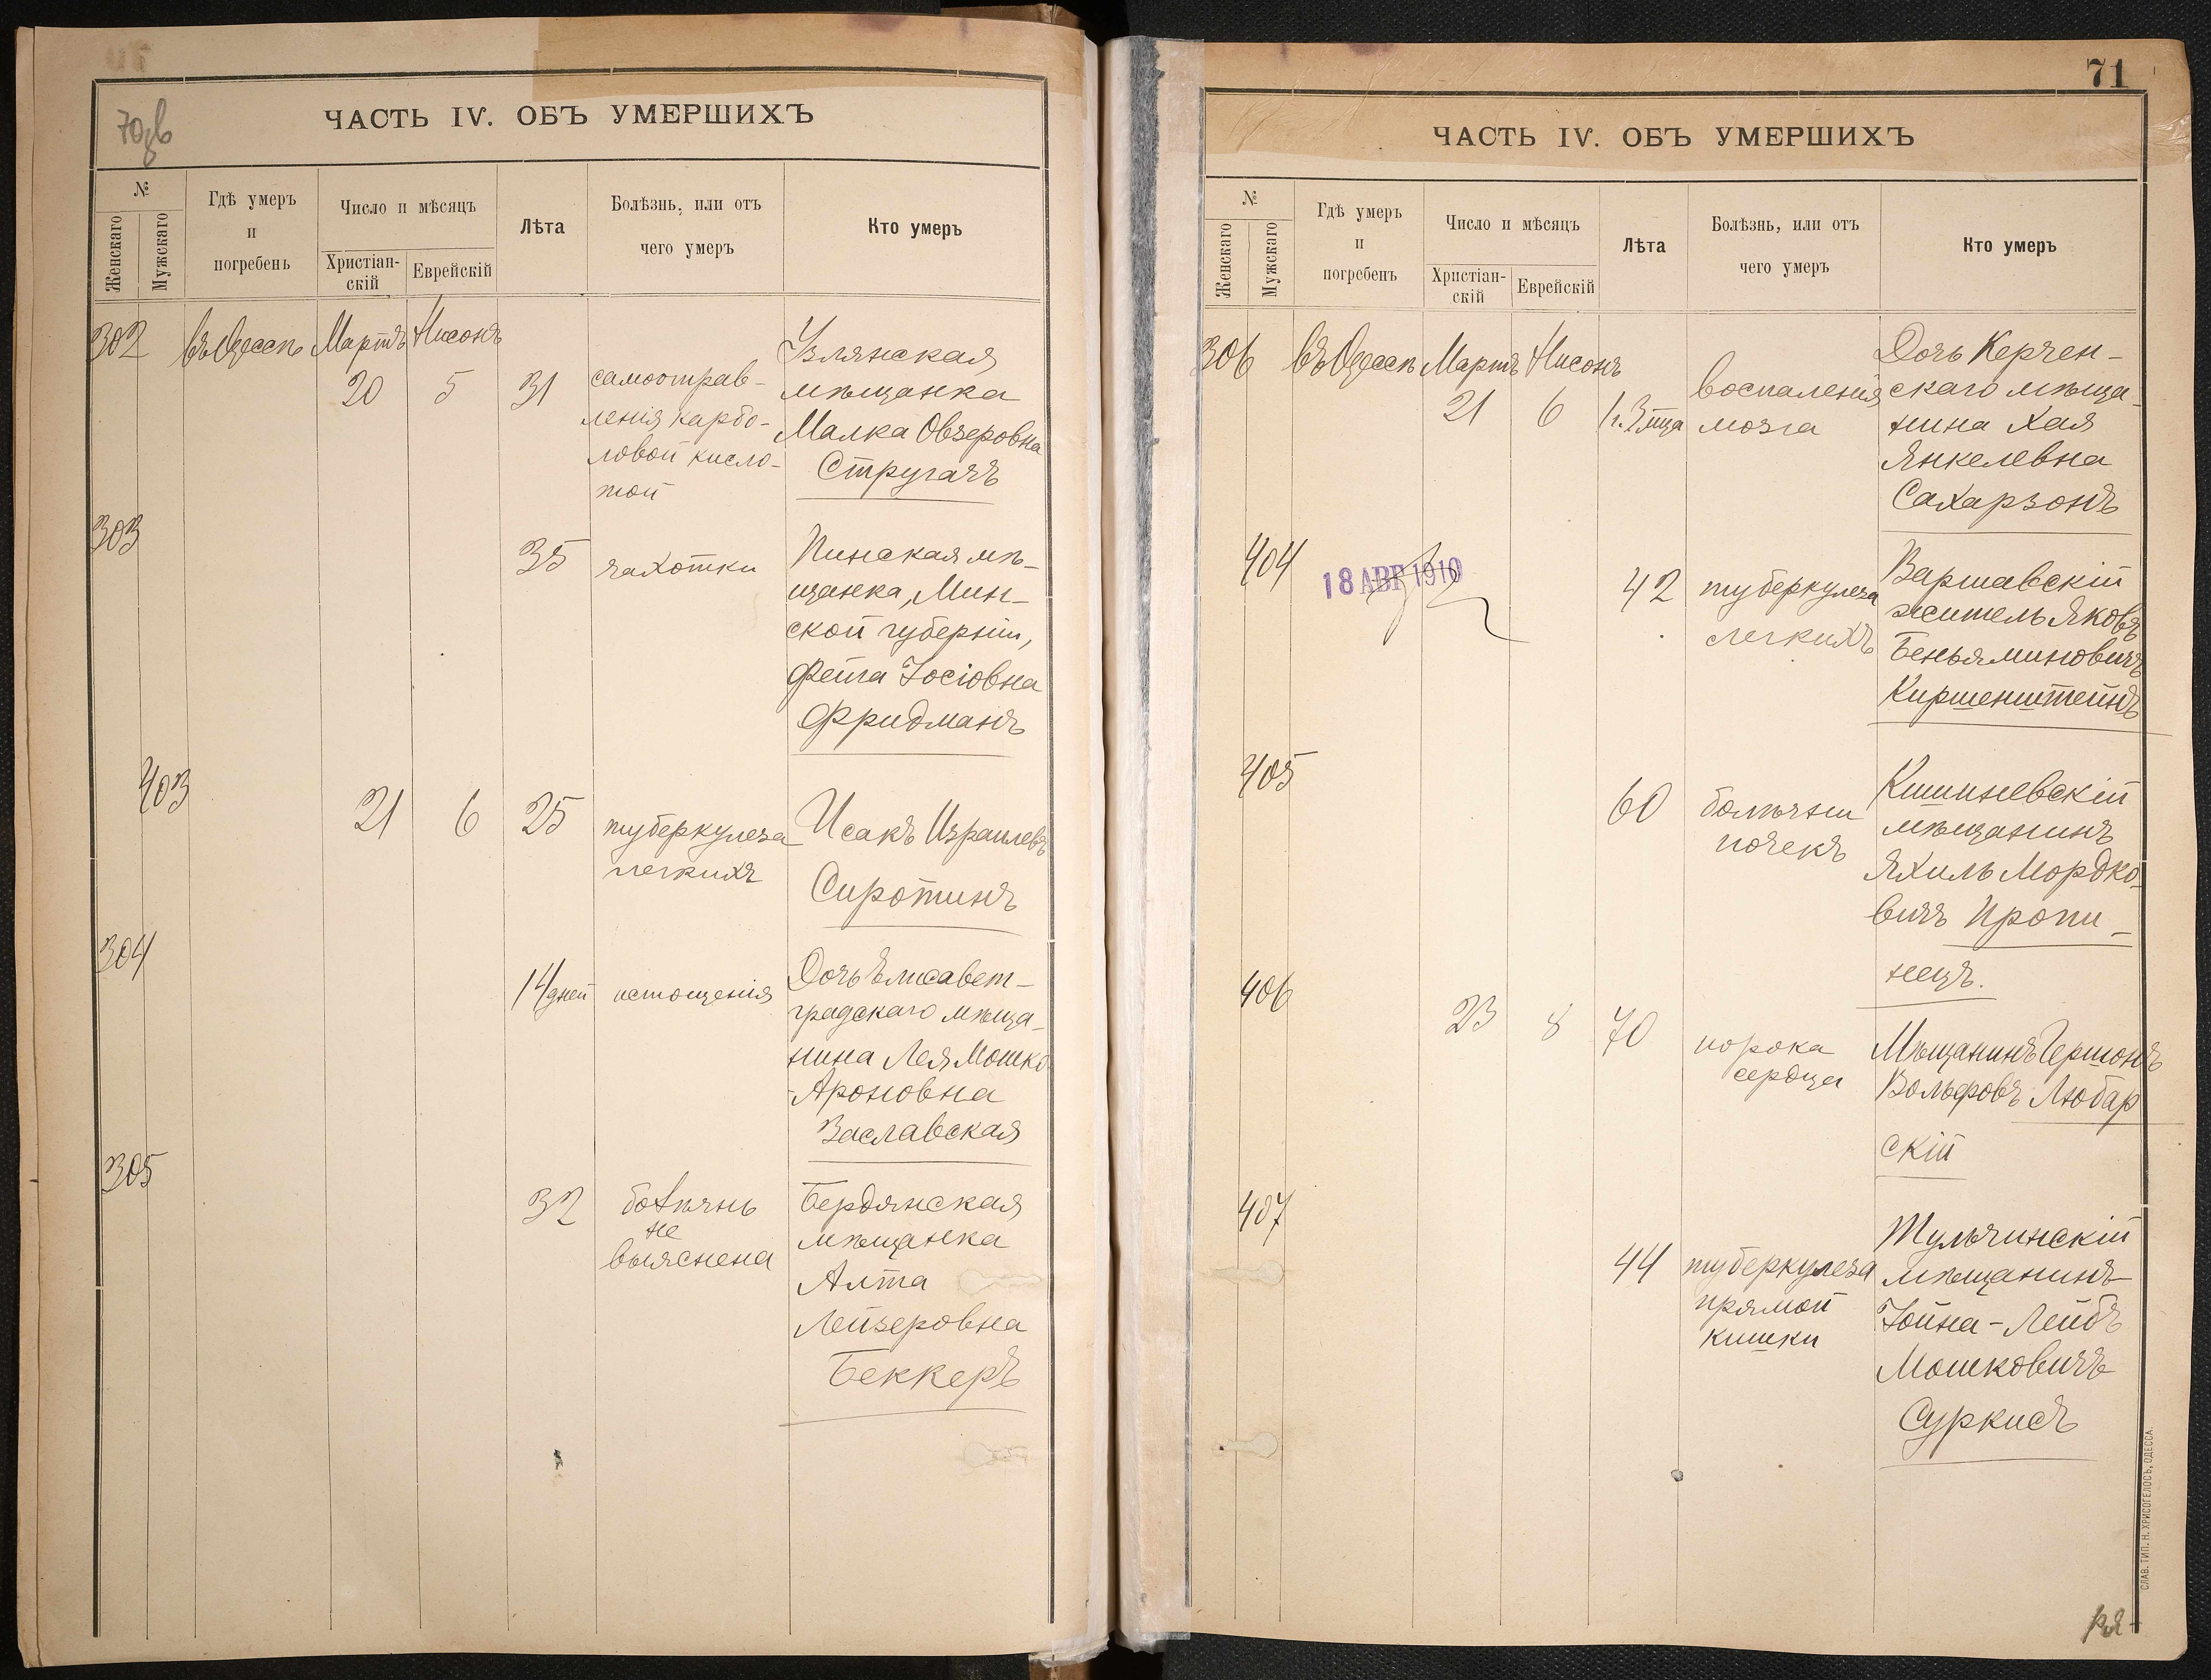 70 зв
ЧАСТЬ IV. ОБЪ УМЕРШИХЪ
№
Женскаго
Мужскаго
Гдѣ умеръ
и
погребенъ
Число и мѣсяцъ
Христіан-
скій
Еврейскій
Лѣта
Болѣзнь, или отъ
чего умеръ
Кто умеръ
302 въ Одессѣ Мартъ Нисонъ
20 5 31
самоотрав-
ленія карбо-
ловой кисло-
той
Узлянская
мѣщанка
Малка Овзеровна
Стругачъ
303
35 чахотки
Пинская мѣ-
щанка, Мин-
ской губерніи,
Фейга Іосіовна
Фридманъ
403
21 6 25
туберкулеза
легкихъ
Исакъ Израилевъ
Сиротинъ
304
14 дней истощенія
Дочь Елисавет-
градскаго мѣща-
нина Лея Мошко-
-Ароновна
Заславская
305
32
болѣзнь
не
выяснена
Бердянская
мѣщанка
Алта
Лейзеровна
Беккеръ
71
ЧАСТЬ IV. ОБЪ УМЕРШИХЪ
№
Женскаго
Мужскаго
Гдѣ умеръ
и
погребенъ
Число и мѣсяцъ
Христіан-
скій
Еврейскій
Лѣта
Болѣзнь, или отъ
чего умеръ
Кто умеръ
306 въ Одессѣ Мартъ Нисонъ
21 6 1 г. 3 мца
воспаленія
мозга
Дочь Керчен-
скаго мѣща-
нина Хая
Янкелевна
Сахарзонъ
404
18 АВГ 1910
42
туберкулеза
легкихъ
Варшавскій
житель Яковъ
Беньяминовичъ
Киршенштейнъ
405
60
болѣзни
почекъ
Кишиневскій
мѣщанинъ
Яхиль Мордко-
вичъ Пропи-
нецъ.
406
23 8 70
порока
сердца
Мѣщанинъ Гершонъ
Вольфовъ Любар
скій
407
44
туберкулеза
прямой
кишки
Тульчинскій
мѣщанинъ
Іойна-Лейбъ
Мошковичъ
Суркисъ
СЛАВ. ТИП. Н. ХРИСОГЕЛОСЪ, ОДЕССА.